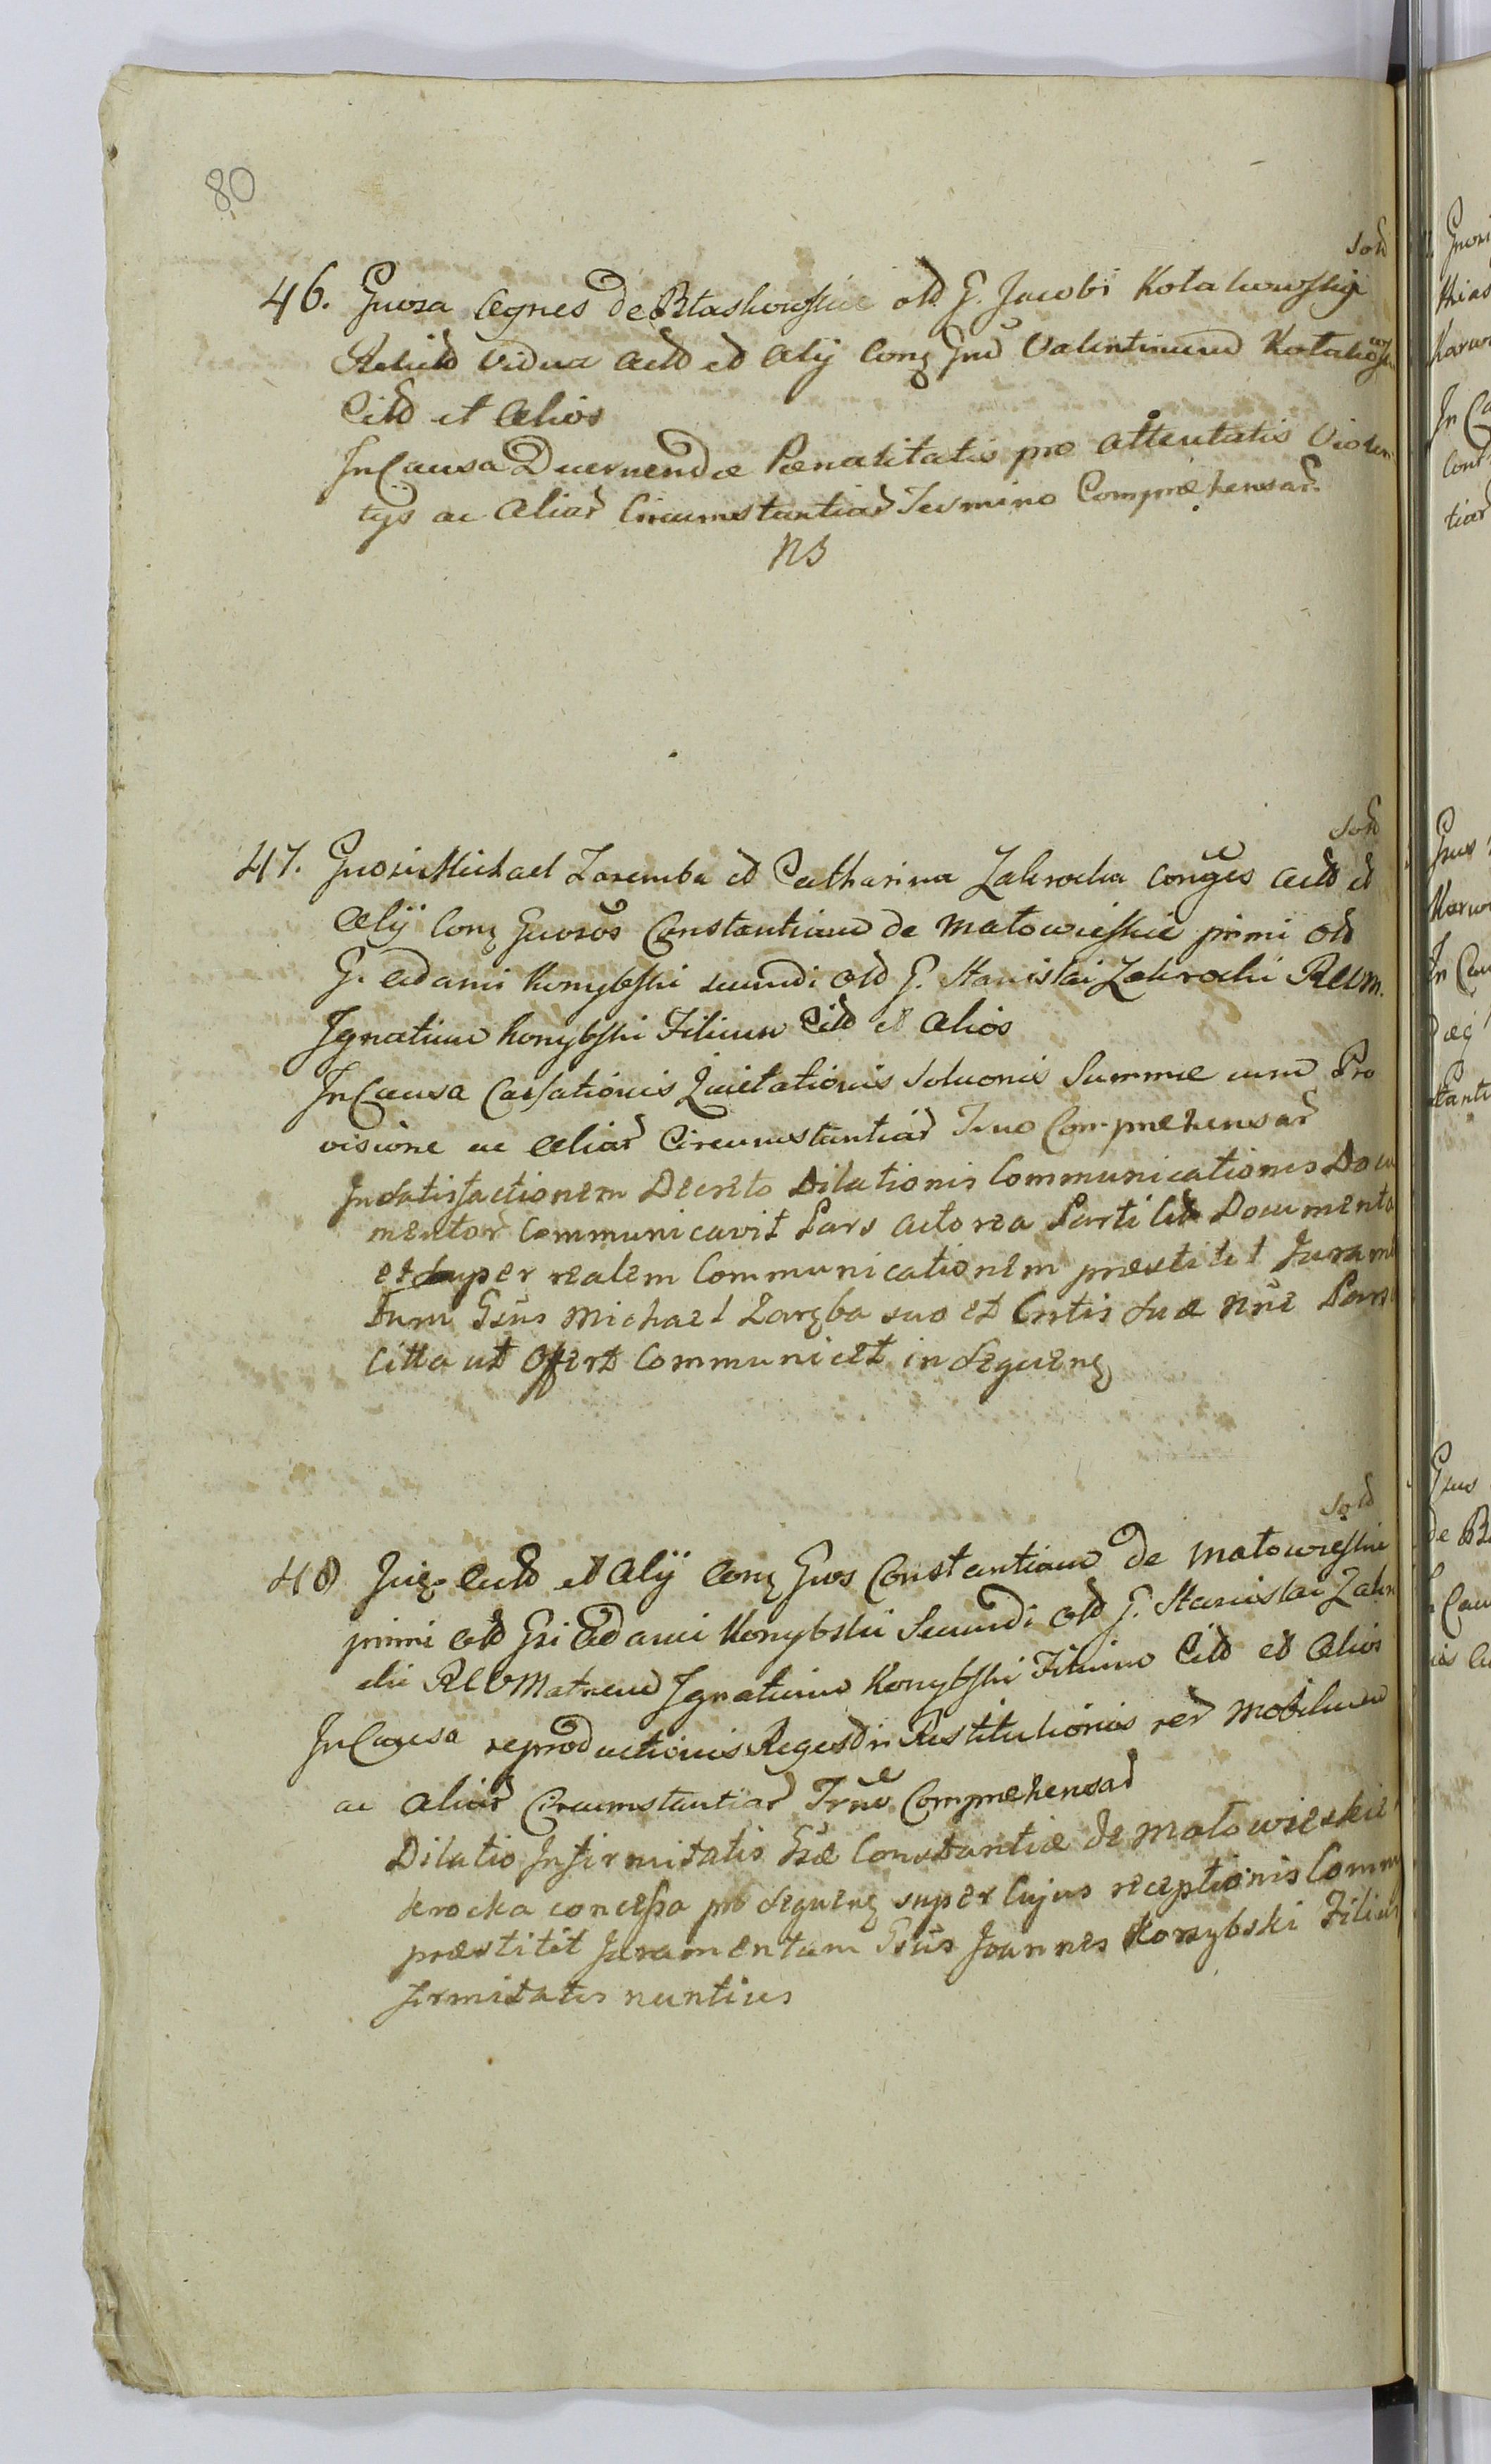 80
Sold
46. Gnosa Agnes de Błaskowskie old G. Jacobi Kotakowskÿ
Relictd Vidua Actd et Alÿ Conz Gnd Valentinum Kotakow
Citd et Alios
In Causa Decernendæ Pœnalitatis pro attentatis Violen
tÿs ac Aliar Circumstantiar Termino Compræhensar
NS
Sold
47. Gnosi Michael Zaremba et Catharina Zakrocka conges Actd et
Alÿ Conz Gnosos Constantiam de Matowieskie primi old
G. Adami Konybski secundi old G. Stanislai Zakrocki RCVM.
Ignatium Konybski Filium Citd et Alios
In Causa Cassationis Quietationis Soluonis Summæ cum Pro
visione ac Aliar Circumstantiar Tno Compræhensar
In Satisfactionem Decreto Dilationis Communicationis Docu
mentor Communicavit Pars actorea Parti Citd Documenta
et super realem Communicationem præstitit Juramen
tum Gsus Michael Zaręba suo et Cntis suæ nñe Pars
Citta ut Offert Communicet in Sequenz
Sold
48 Iiz. Actd et Alÿ Conz Gnos Constantiam de Matowieskie
primi old Gsi Adami Konybski Secundi old G. Stanislai Zakro
cki RCVMatrem Ignatium Konybski Filium Citd et Alios
In Causa reproductionis Regestri Restitutionis rer Mobilium
ac Aliar Circumstantiar Trño Compræhensar
Dilatio Infirmitatis Gsæ Constantiæ de Matowieskie
krocka concessa pro Sequenz super Cujus receptionis Comm
præstitit Juramentum Gsus Joannes Korzybski Filius
firmitatis nuntius